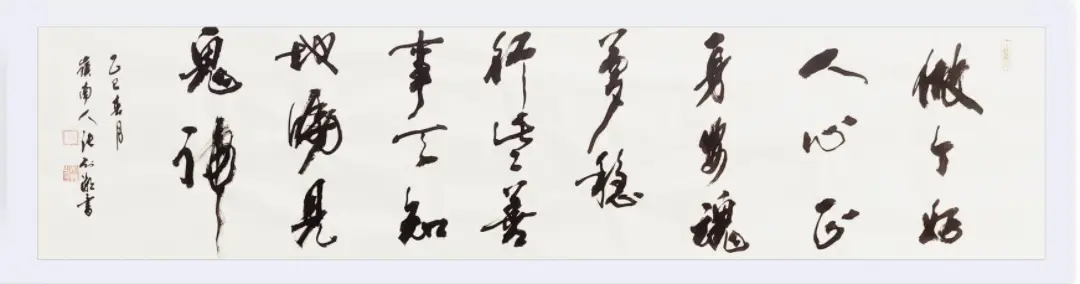 做个好
人心正
身安魂
夢稳
行些善
事天知
地見
鬼神
乙巳春月
嶺南人張書